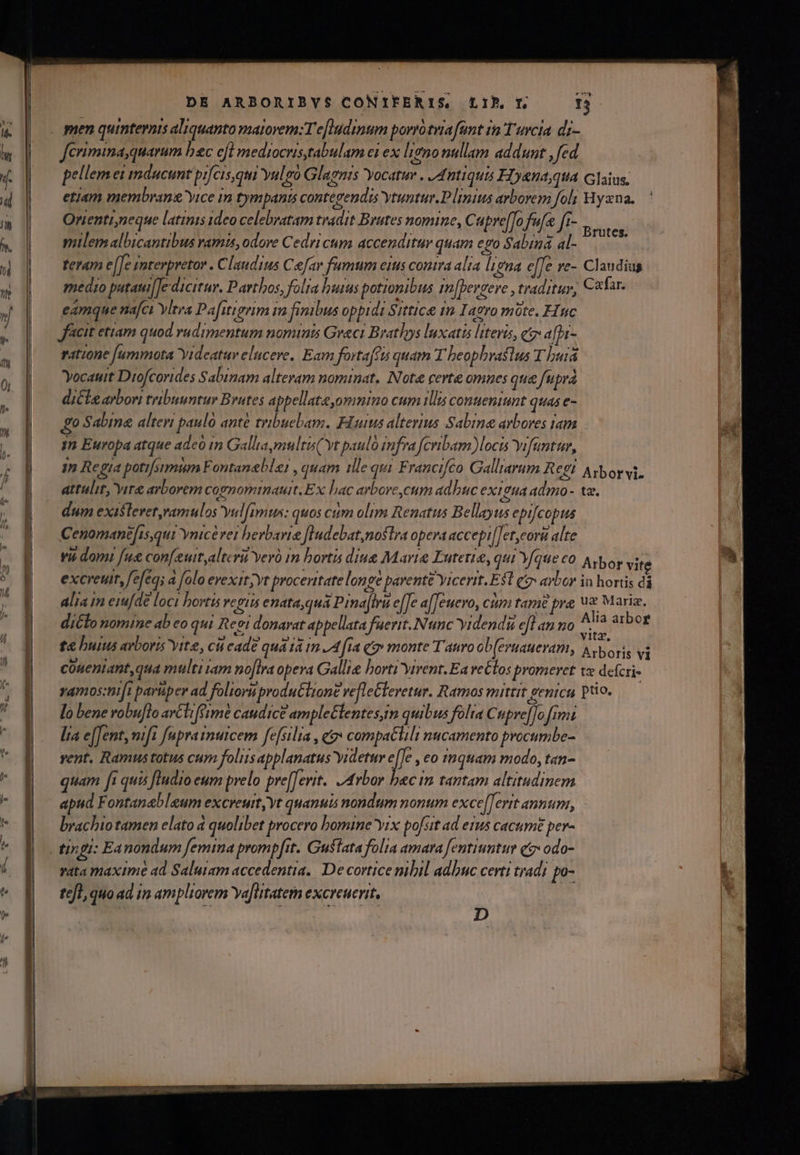 DE ARBORIBVS CONIFERIS, LIB. I. 13
men quinternis aliquanto maiorem: Testudinum porrò tria sunt in Turcia di-
scrimina, quarum hæc est mediocris, tabulam ei ex ligno nullam addunt, sed
pellem ei inducunt piscis, qui vulgò Glagnis vocatur. Antiquis Hyæna, qua
Glaius.
etiam membranæ vice in tympanis contegendis vtuntur. Plinius arborem soli
Hyæna.
Orienti, neque latinis ideo celebratam tradit Brutes nomine, Cupresso fusæ si-
Brutes.
milem albicantibus ramis, odore Cedri cum accenditur quam ego Sabinā al-
teram esse interpretor. Claudius Cæsar fumum eius contra alia ligna esse re-
Claudius
medio putauisse dicitur. Parthos, folia huius potionibus inspergere, traditur,
Cæsar.
eámque nasci vltra Pasitigrim in finibus oppidi Sitticæ in Zagro mōte. Huc
facit etiam quod rudimentum nominis Græci Brathys luxatis literis, & aspi-
ratione summota videatur elucere. Eam fortassis quam Theophrastus Thuiā
vocauit Dioscorides Sabinam alteram nominat. Notæ certæ omnes quæ suprà
dictæ arbori tribuuntur Brutes appellatæ, omnino cum illis conueniunt quas e-
go Sabinæ alteri paulò antè tribuebam. Huius alterius Sabinæ arbores iam
in Europa atque adeò in Gallia, multis (vt paulò infra scribam) locis visuntur,
in Regia potissimùm Fontanæblei, quam ille qui Francisco Galliarum Regi
Arbor vi-
attulit, vitæ arborem cognominauit. Ex hac arbore, cum adhuc exigua admo-
tæ.
dum existeret, ramulos vulsimus: quos cùm olim Renatus Bellayus episcopus
Cenomanēsis, qui vnicè rei herbariæ studebat, nostra opera accepisset, eorū alte
rū domi suæ conseuit, alterū verò in hortis diuæ Mariæ Lutetiæ, qui vsque eo
Arbor vitę
excreuit, seseq; à solo erexit, vt proceritate longè parentē vicerit. Est & arbor
in hortis di
alia in eiusdē loci hortis regiis enata, quā Pinastrū esse asseuero, cùm tamē præ
uæ Mariæ.
dicto nomine ab eo qui Regi donarat appellata fuerit. Nunc videndū est an no
Alia arbor
vitæ.
tæ huius arboris vitæ, cū eadē quā iā in Asia & monte Tauro obseruaueram,
Arboris vi
cōueniant, qua multi iam nostra opera Galliæ horti virent. Ea rectos promeret
tæ descri-
ramos: nisi parūper ad foliorū productionē reflecteretur. Ramos mittit genicu
ptio.
lo bene robusto arctissimè caudicē amplectentes, in quibus folia Cupresso simi
lia essent, nisi supra inuicem sessilia, & compactili nucamento procumbe-
rent. Ramus totus cum foliis applanatus videtur esse, eo inquam modo, tan-
quam si quis studio eum prelo presserit. Arbor hæc in tantam altitudinem
apud Fontanæbleum excreuit, vt quanuis nondum nonum excesserit annum,
brachio tamen elato à quolibet procero homine vix possit ad eius cacumē per-
tingi: Ea nondum semina prompsit. Gustata folia amara sentiuntur & odo-
rata maximè ad Saluiam accedentia. De cortice nihil adhuc certi tradi po-
test, quo ad in ampliorem vastitatem excreuerit.
D